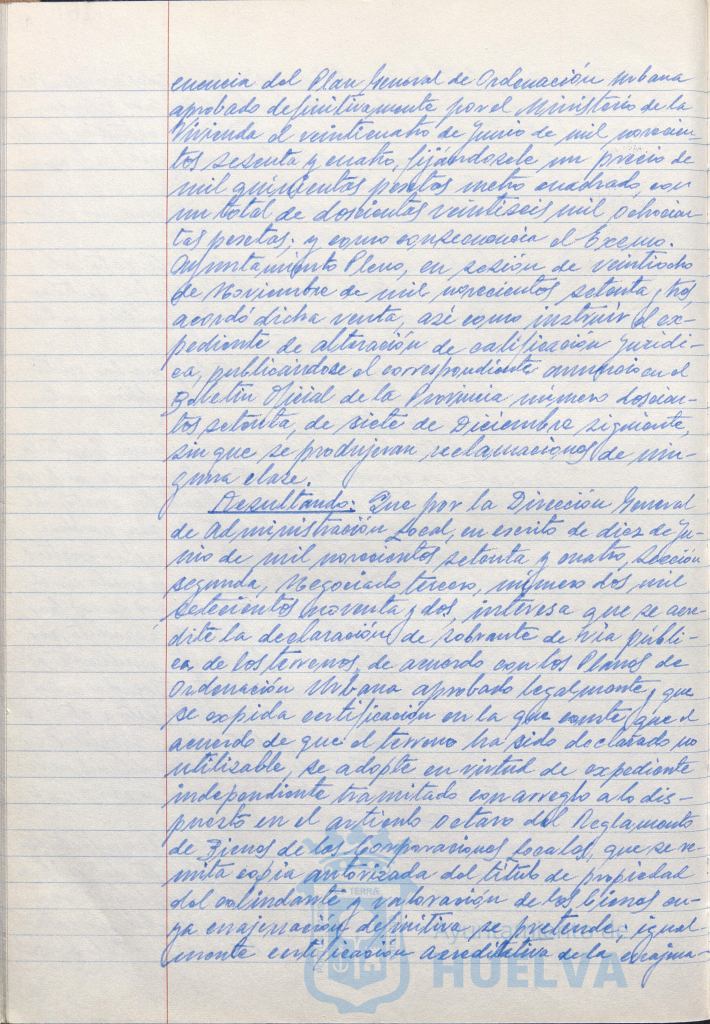 cuencia del Plan General de Ordenación Urbana
aprobado definitivamente por el Ministerio de la
Vivienda el veinticuatro de Junio de mil novecien-
tos sesenta y cuatro, fijándosele un precio de
mil quinientas pesetas metro cuadrado, con
un total de doscientas veintiseis mil ochocien-
tas pesetas; y como consecuencia el Excmo.
Ayuntamiento Pleno, en sesión de veintiocho
de Noviembre de mil novecientos setenta y tres,
acordó dicha venta, asé como instruir el ex-
pediente de alteración de calificación jurídi-
ca, publicándose el correspondiente anuncio en el
Boletín Oficial de la Provincia número doscien-
tos setenta, de siete de Diciembre siguiente,
sin que se produjeran reclamaciones de nin-
guna clase.
Resultando: Que por la Dirección General
de Administración Local, en escrito de diez de Ju-
nio de mil novecientos setenta y cuatro, Sección
segunda, Negociado tercero, número dos mil
setecientos noventa y dos, interesa que se acre-
dite la declaración de sobrante de vía públi-
ca de los terrenos, de acuerdo con los Planos de
Ordenación Urbana aprobado legalmente, que
se expida certificación en la que conste que el
acuerdo de que el terreno ha sido declarado no
utilizable, se adopte en virtud de expediente
independiente tramitado con arreglo a lo dis-
puesto en el artículo octavo del Reglamento
de Bienes de las Corporaciones Locales, que se re-
mita copia autorizada del título de propiedad
del colindante y valoración de los bienes cu-
ya enajenación definitiva se pretende; igual-
mente certificación acreditativa de la enajena-
TERRÆ
Ayuntamiento de
HUELVA